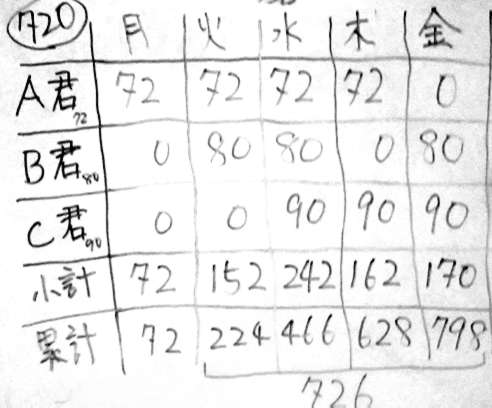 720 月 火 水 木 金
A君72 72 72 72 72 0
B君80 0 80 80 0 80
C君90 0 0 90 90 90
小計 72 152 242 162 170
累計 72 224 466 628 798
726